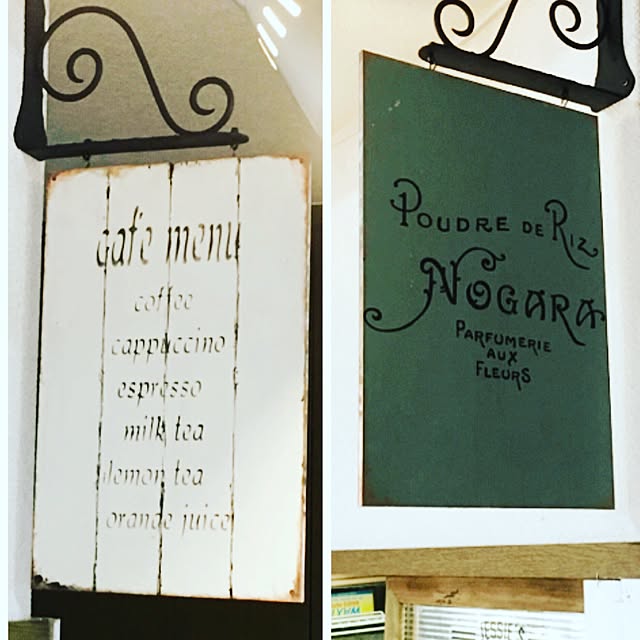 café menu
coffee
cappuccino
espresso
milk tea
lemon tea
orange juice
POUDRE DE RIZ
NOGARA
PARFUMERIE
AUX
FLEURS
JESSIE'S